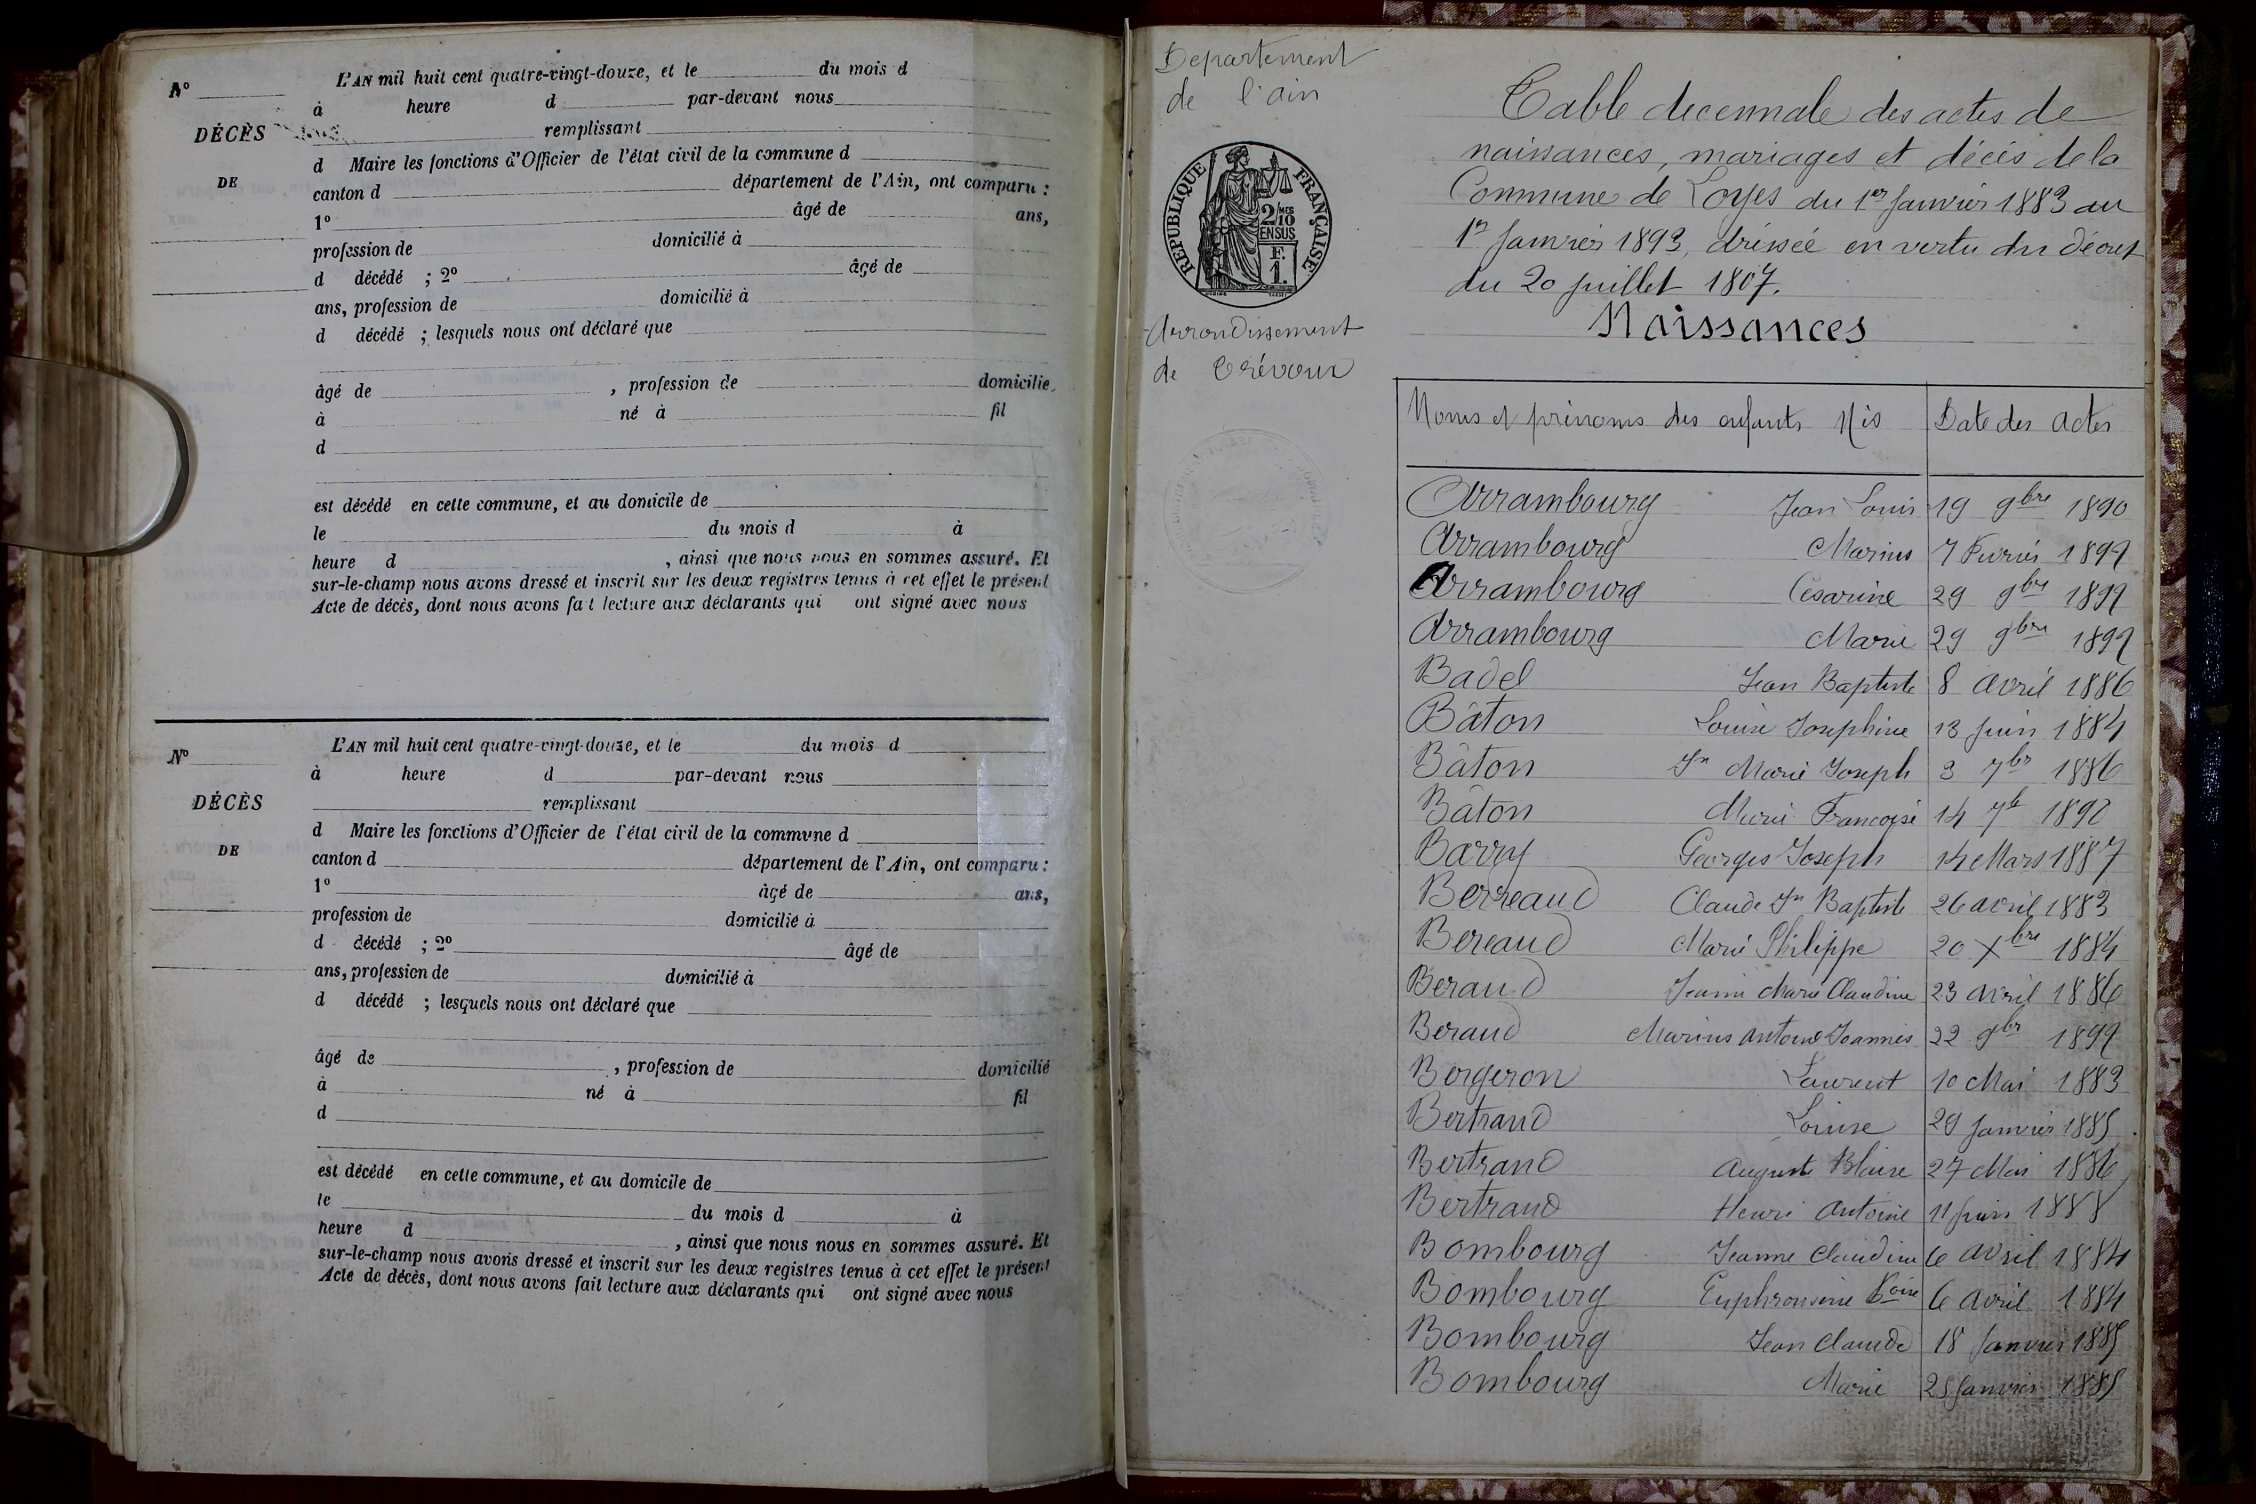 N°
L'AN mil huit cent quatre-vingt-douze, et le du mois d
à heure d par-devant nous
DÉCÈS
remplissant
d Maire les fonctions d'Officier de l'état civil de la commune d
DE
canton d département de l'Ain, ont comparu :
1° âgé de ans,
profession de domicilié à
d décédé ; 2° âgé de
ans, profession de domicilié à
d décédé ; lesquels nous ont déclaré que
âgé de , profession de domicilié
à né à fil
d
est décédé en cette commune, et au domicile de
le du mois d à
heure d , ainsi que nous nous en sommes assuré. Et
sur-le-champ nous avons dressé et inscrit sur les deux registres tenus à cet effet le présent
Acte de décès, dont nous avons fait lecture aux déclarants qui ont signé avec nous
N°
L'AN mil huit cent quatre-vingt-douze, et le du mois d
à heure d par-devant nous
DÉCÈS
remplissant
d Maire les fonctions d'Officier de l'état civil de la commune d
DE
canton d département de l'Ain, ont comparu :
1° âgé de ans,
profession de domicilié à
d décédé ; 2° âgé de
ans, profession de domicilié à
d décédé ; lesquels nous ont déclaré que
âgé de , profession de domicilié
à né à fil
d
est décédé en cette commune, et au domicile de
le du mois d à
heure d , ainsi que nous nous en sommes assuré. Et
sur-le-champ nous avons dressé et inscrit sur les deux registres tenus à cet effet le présent
Acte de décès, dont nous avons fait lecture aux déclarants qui ont signé avec nous
Departement
de l'ain
RÉPUBLIQUE FRANÇAISE
2/10 MES
EN SUS
F.
1.
Arrondissement
de Trévoux
Table decennale des actes de
naissances, mariages et décès de la
Commune de Loyes du 1er Janvier 1883 au
1er Janvier 1893, dréssée en vertu du Décret
du 20 juillet 1807.
Naissances
Noms et prénoms des enfants Nés Date des Actes
Arrambourg Jean Louis 19 9bre 1890
Arrambourg Marius 7 Fevrier 1892
Arrambourg Césarine 29 9bre 1892
Arrambourg Marie 29 9bre 1892
Badel Jean Baptiste 8 avril 1886
Bâton Louise Josephine 13 juin 1884
Bâton Jn Marie Joseph 3 7br 1886
Bâton Marie Françoise 14 7b 1890
Barry Georges Joseph 14 Mars 1887
Berreaud Claude Jn Baptiste 26 avril 1883
Bereaud Marie Philippe 20 Xbre 1884
Beraud Jeanne Marie Claudine 23 avril 1886
Beraud Marius Antoine Joannès 22 9br 1892
Bergeron Laurent 10 Mai 1883
Bertrand Louise 29 Janvier 1885
Bertrand Auguste Blaise 27 Mai 1886
Bertrand Henri Antoine 11 juin 1888
Bombourg Jeanne Claudine 6 avril 1884
Bombourg Euphrosine 6 avril 1884
Bombourg Jean Claude 18 Janvier 1885
Bombourg Marie 25 Janvier 1885